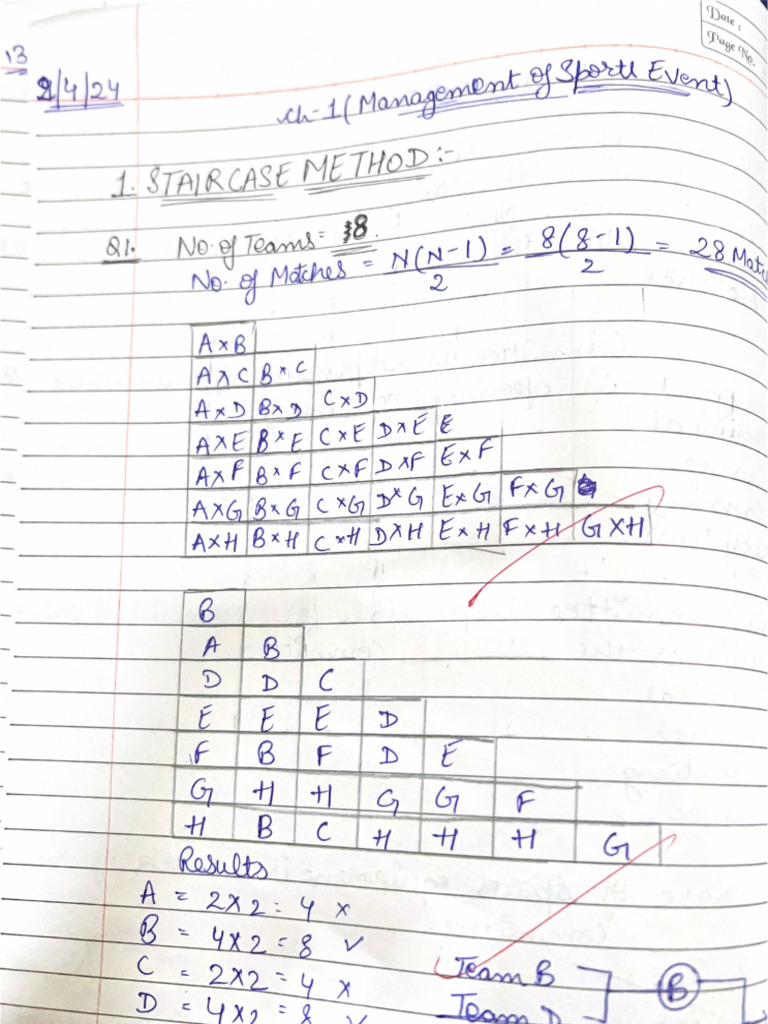 Date :
Page No.
13
2/4/24
ch-1 (Management of Sports Event)
1. STAIRCASE METHOD:-
Q1. No. of Teams = 8.
No. of Matches = N(N-1)/2 = 8(8-1)/2 = 28 Matc
A×B
A×C B×C
A×D B×D C×D
A×E B×E C×E D×E E
A×F B×F C×F D×F E×F
A×G B×G C×G D×G E×G F×G
A×H B×H C×H D×H E×H F×H G×H
B
A B
D D C
E E E D
F B F D E
G H H G G F
H B C H H H G
Results
A = 2×2 = 4 ×
B = 4×2 = 8 ✓
C = 2×2 = 4 ×
D = 4×2 = 8 ✓
Team B
B
Team D